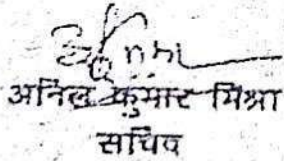 अनिल कुमार मिश्रा
सचिव